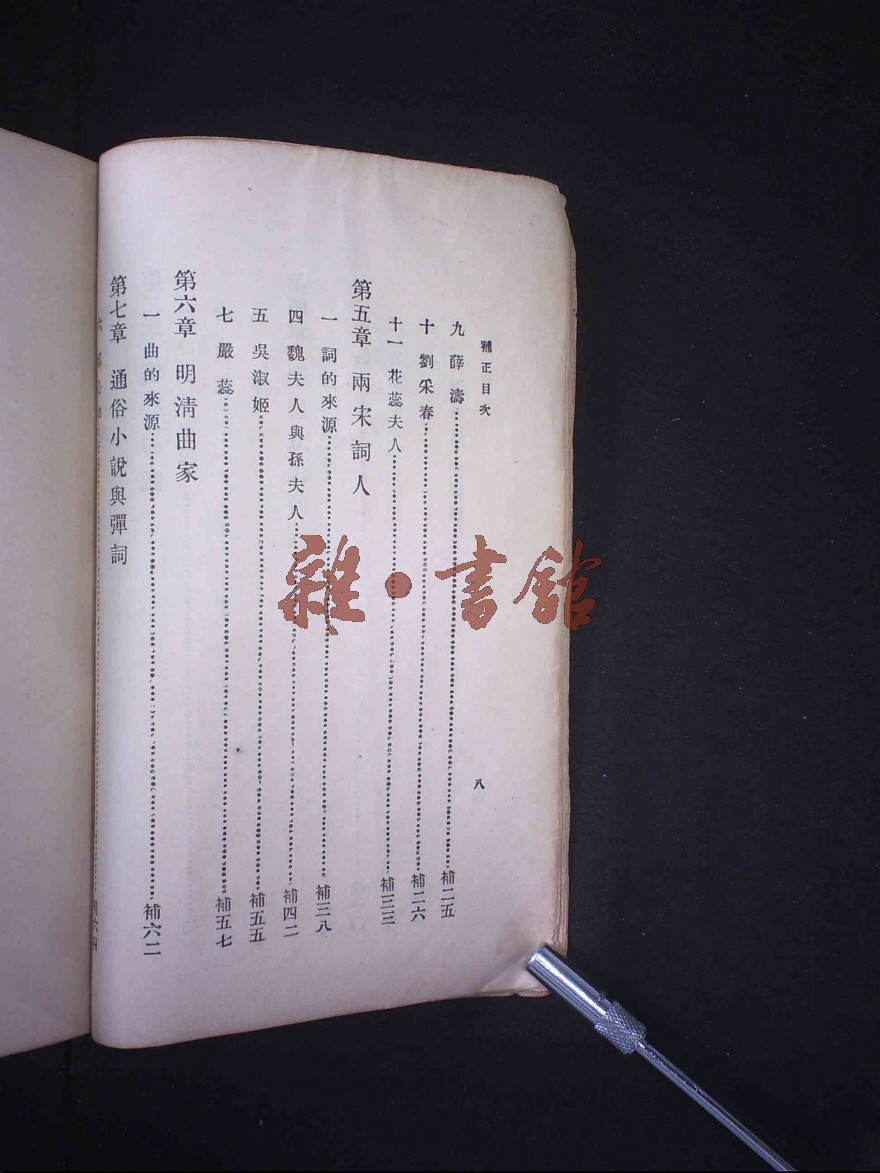 補正目次
八
九 薛濤 補二五
十 劉采春 補二六
十一 花蕊夫人 補三三
第五章 兩宋詞人
一 詞的來源 補三八
四 魏夫人與孫夫人 補四二
五 吳淑姬 補五五
七 嚴蕊 補五七
第六章 明淸曲家
一 曲的來源 補六二
第七章 通俗小說與彈詞
雜·書館